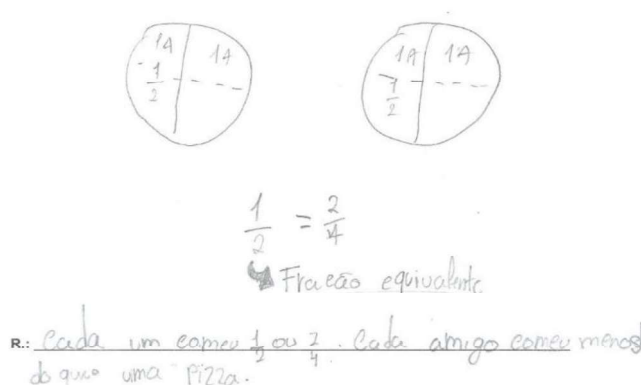 1A 1A
1/2
1A 1A
1/2
1/2 = 2/4
Fração equivalente
R.: Cada um comeu 1/2 ou 2/4. Cada amigo comeu menos
do que uma Pizza.